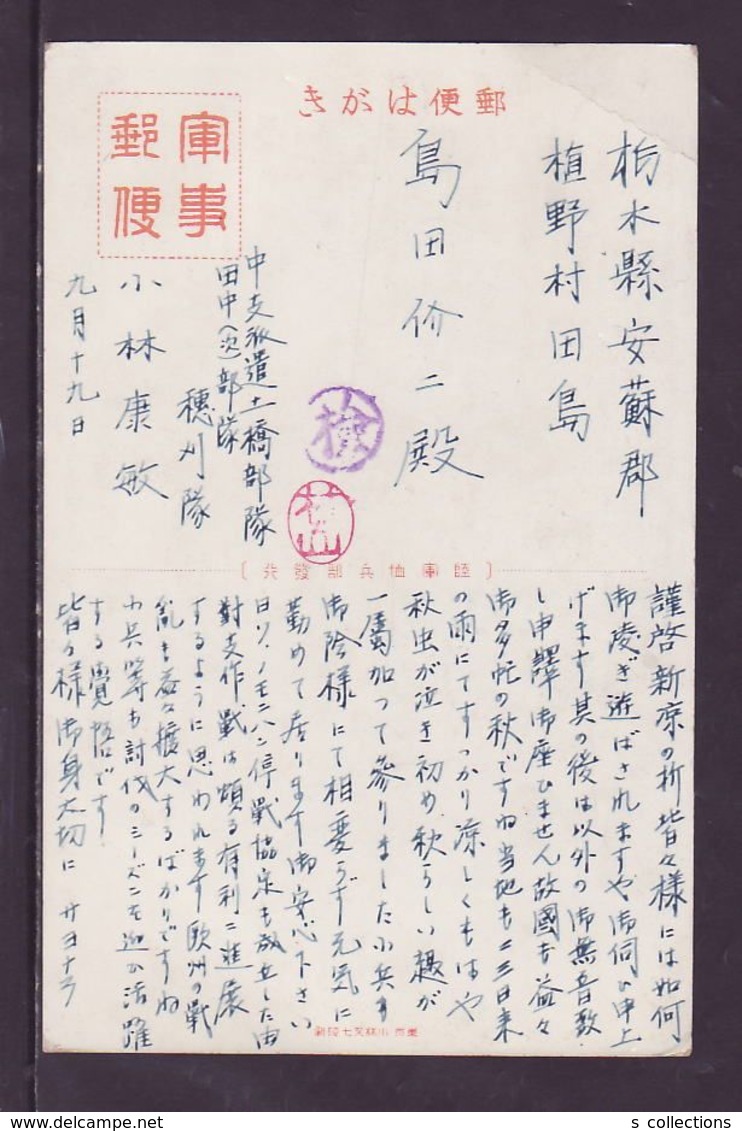 郵便はがき
軍事
郵便
栃木縣安蘇郡
植野村田島
島田竹二殿
中支派遣土橋部隊
田中(次)部隊
穂刈隊
小林康敏
九月十九日
検
〔陸軍恤兵部發行〕
謹啓新凉の折皆々様には如何
御凌ぎ遊ばされますや御伺ひ申上
げます其の後は以外の御無音致
し申譯御座ひません故國も益々
御多忙の秋ですね当地も二三日来
の雨にてすっかり凉しくもはや
秋虫が泣き初め秋らしい趣が
一層加つて参りました小兵も
御陰様にて相変らず元気に
勤めて居ります御安心下さい
日ソ、ノモンハン停戰協定も成立した由
對支作戰は頗る有利に進展
するように思われます欧州の戰
亂も益々擴大するばかりですね
小兵等も討伐のシーズンを迎か活躍
する覺悟です
皆々様御身大切に サヨナラ
東京 小林又七印刷
s collections